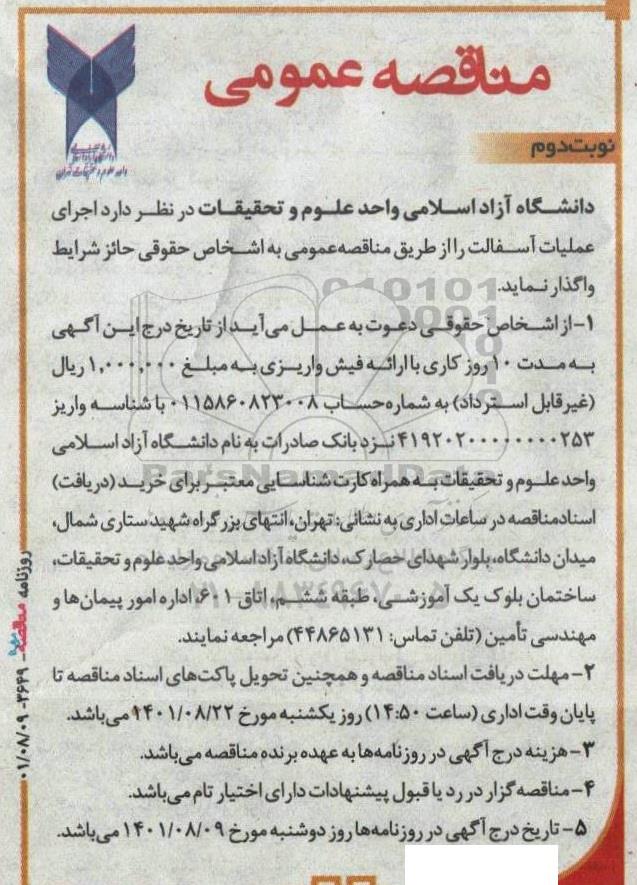 مناقصه عمومی
نوبت دوم
دانشگاه آزاد اسلامی واحد علوم و تحقیقات در نظر دارد اجرای
عملیات آسفالت را از طریق مناقصه عمومی به اشخاص حقوقی حائز شرایط
واگذار نماید.
۱- از اشخاص حقوقی دعوت به عمل می‌آید از تاریخ درج این آگهی
به مدت ۱۰ روز کاری با ارائه فیش واریزی به مبلغ ۱,۰۰۰,۰۰۰ ریال
(غیر قابل استرداد) به شماره حساب ۰۱۱۵۸۶۰۸۲۳۰۰۸ با شناسه واریز
۴۱۹۲۰۲۰۰۰۰۰۰۰۰۰۲۵۳ نزد بانک صادرات به نام دانشگاه آزاد اسلامی
واحد علوم و تحقیقات به همراه کارت شناسایی معتبر برای خرید (دریافت)
اسناد مناقصه در ساعات اداری به نشانی: تهران، انتهای بزرگراه شهید ستاری شمال،
میدان دانشگاه، بلوار شهدای حصارک، دانشگاه آزاد اسلامی واحد علوم و تحقیقات،
ساختمان بلوک یک آموزشی، طبقه ششم، اتاق ۶۰۱، اداره امور پیمان‌ها و
مهندسی تأمین (تلفن تماس: ۴۴۸۶۵۱۳۱) مراجعه نمایند.
۲- مهلت دریافت اسناد مناقصه و همچنین تحویل پاکت‌های اسناد مناقصه تا
پایان وقت اداری (ساعت ۱۴:۵۰) روز یکشنبه مورخ ۱۴۰۱/۰۸/۲۲ می‌باشد.
۳- هزینه درج آگهی در روزنامه‌ها به عهده برنده مناقصه می‌باشد.
۴- مناقصه‌گزار در رد یا قبول پیشنهادات دارای اختیار تام می‌باشد.
۵- تاریخ درج آگهی در روزنامه‌ها روز دوشنبه مورخ ۱۴۰۱/۰۸/۰۹ می‌باشد.
روزنامه مناقصه - ۳۶۴۹ - ۰۱/۰۸/۰۹
ParsNamadData